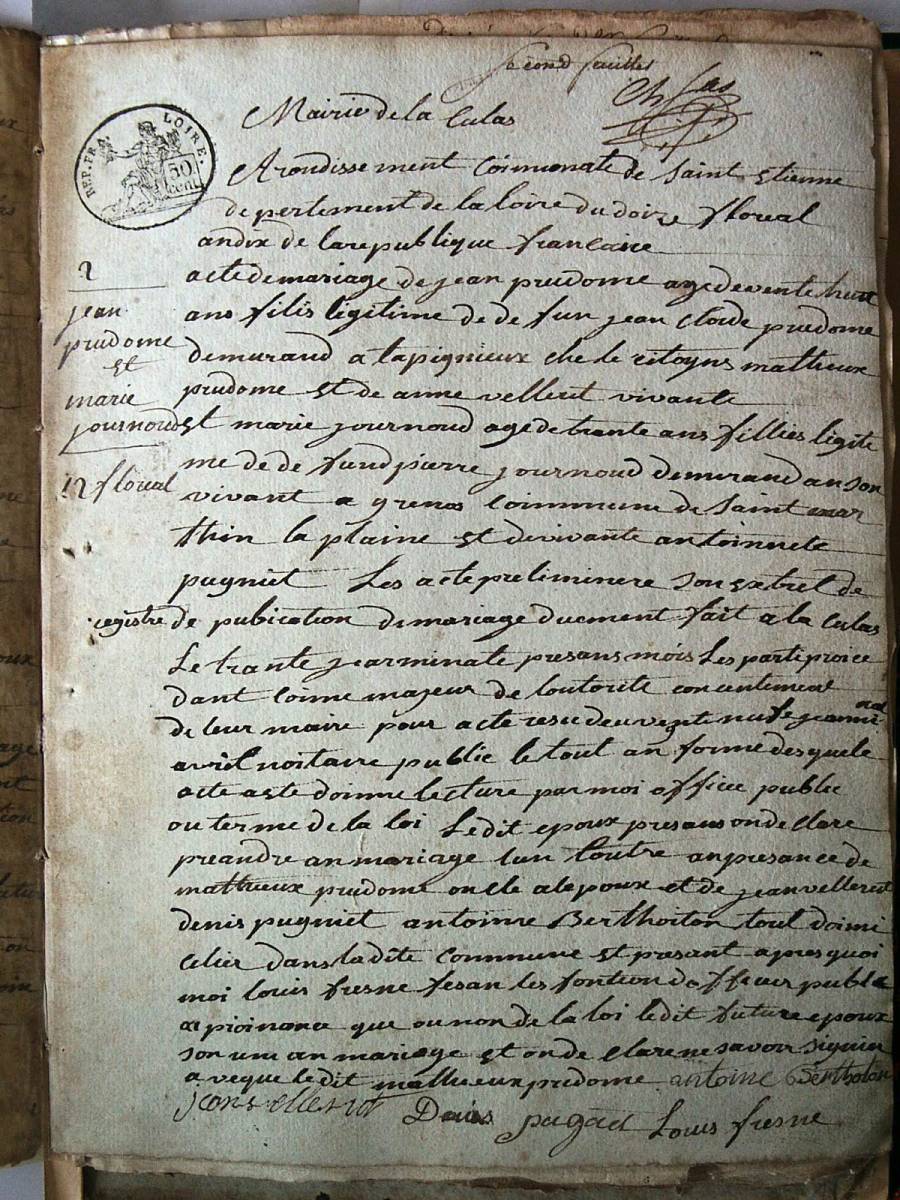 second feuillet
Mairie de la Culas
REP. FRA. LOIRE. 50 cent
Arondissement Commonate de Saint Etienne
depertement de la loire du doize floreal
an dix de la republique francaise
2
acte de mariage de jean prudome age de vente heut
jean prudome et marie journoud
ans filis legitime de de fun jean cloude prudome
demurand a tapignieux che le citoyns mathieux
prudome et de anne vellerut vivante
et marie journoud age de trante ans fillies legiti
12 floreal
me de de fund pierre journoud demurand an son
vivant a grenas coimmune de Saint mar
thin la plaine et de vivante antoinnete
pugniet Les acte preliminere son extret de
registre de pubication de mariage duement fait a la Culas
Le trante jearminale presans mois Les parti proice
dant coime majeur de loutorite concentement
de leur maire pour acte resu de vent nut
avril noitaire public le tout an forme desquele
acte a ete doinne lecture par moi office public
ou terme de la loi Ledit epoux presans on de clare
preandre an mariage lun loutre an presance de
mathieux prudome oncle a lepoux et de jean vellerut
denis pugniet antoinne Berthoiton tout doimi
cilier dans la dite commune et presant apres quoi
moi louis fresne fesan les fontion dofficier public
a proinonce que ou non de la loi ledit future epoux
son uni an mariage et on de clare ne savoir signier
a veque ledit mathieux prudome antoine Bertholon
jean vellerut Denis pagnet Louis fresne